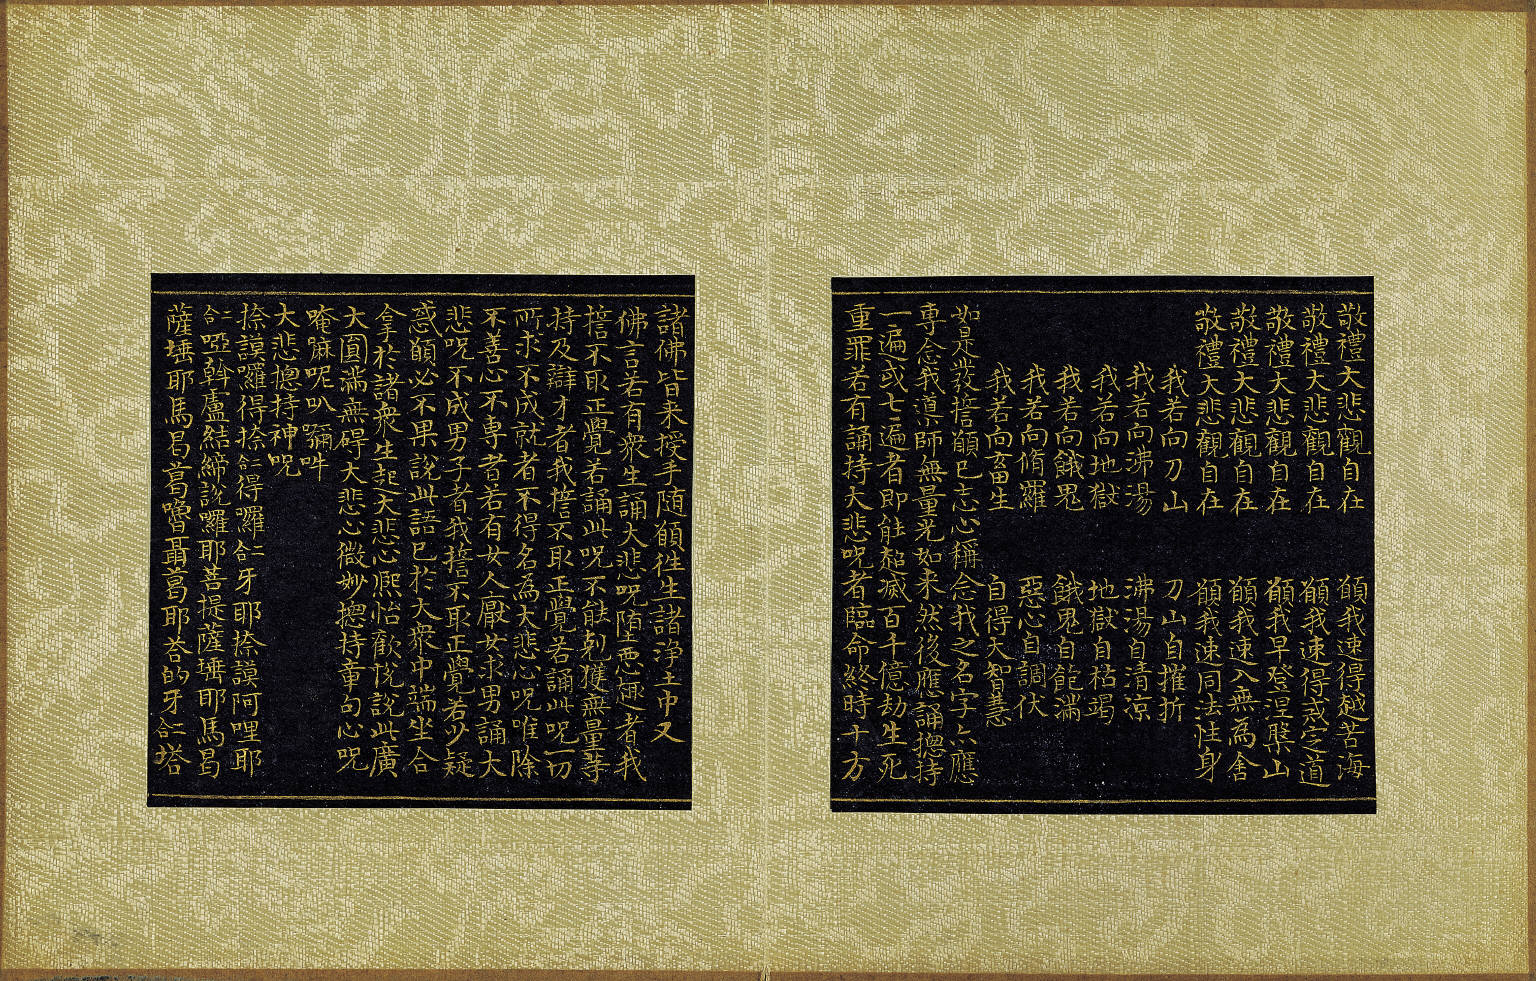 敬禮大悲觀自在　願我速得越苦海
敬禮大悲觀自在　願我速得戒定道
敬禮大悲觀自在　願我早登涅槃山
敬禮大悲觀自在　願我速入無為舍
敬禮大悲觀自在　願我速同法性身
我若向刀山　刀山自摧折
我若向沸湯　沸湯自清凉
我若向地獄　地獄自枯竭
我若向餓鬼　餓鬼自飽滿
我若向脩羅　惡心自調伏
我若向畜生　自得大智慧
如是發誓願已志心稱念我之名字亦應
專念我導師無量光如来然後應誦揔持
一遍或七遍者即能超滅百千億劫生死
重罪若有誦持大悲呪者臨命終時十方
諸佛皆来授手随願徃生諸淨土中又
佛言若有衆生誦大悲呪墮惡趣者我
誓不取正覺若誦此呪不能剋獲無量等
持及辯才者我誓不取正覺若誦此呪一切
所求不成就者不得名為大悲心呪唯除
不善心不專者若有女人厭女求男誦大
悲呪不成男子者我誓不取正覺若少疑
惑願必不果說此語已於大衆中端坐合
拿於諸衆生起大悲心熈怡歡悅說此廣
大圎滿無碍大悲心微妙揔持章句心呪
唵嘛呢叭𡄣吽
大悲揔持神呪
捺謨囉得捺合仁得囉合二牙耶捺謨阿哩耶
合二啞斡盧結締說囉耶菩提薩埵耶馬曷
薩埵耶馬曷葛嚕聶葛耶荅的牙合仁塔